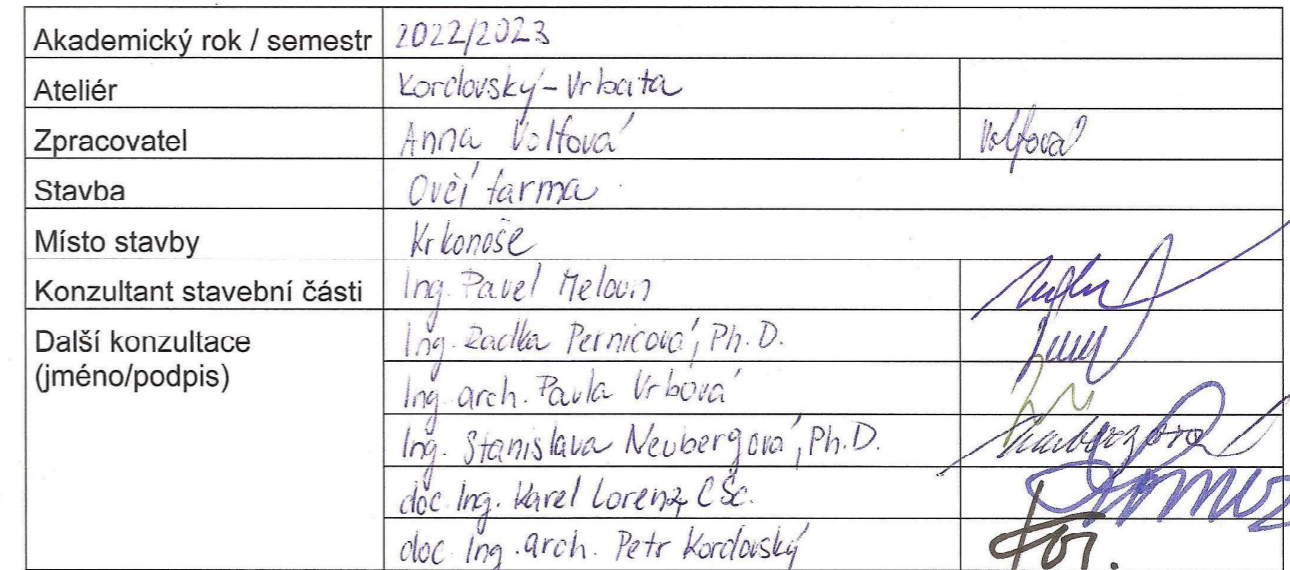 Akademický rok / semestr 2022/2023
Ateliér Kordovský-Vrbata
Zpracovatel Anna Volfová Volfová
Stavba Ovčí farma
Místo stavby Krkonoše
Konzultant stavební části Ing. Pavel Meloun
Další konzultace Ing. Radka Pernicová, Ph.D.
(jméno/podpis)
Ing. arch. Pavla Vrbová
Ing. Stanislava Neubergová, Ph.D.
doc. Ing. Karel Lorenz, CSc.
doc. Ing. arch. Petr Kordovský